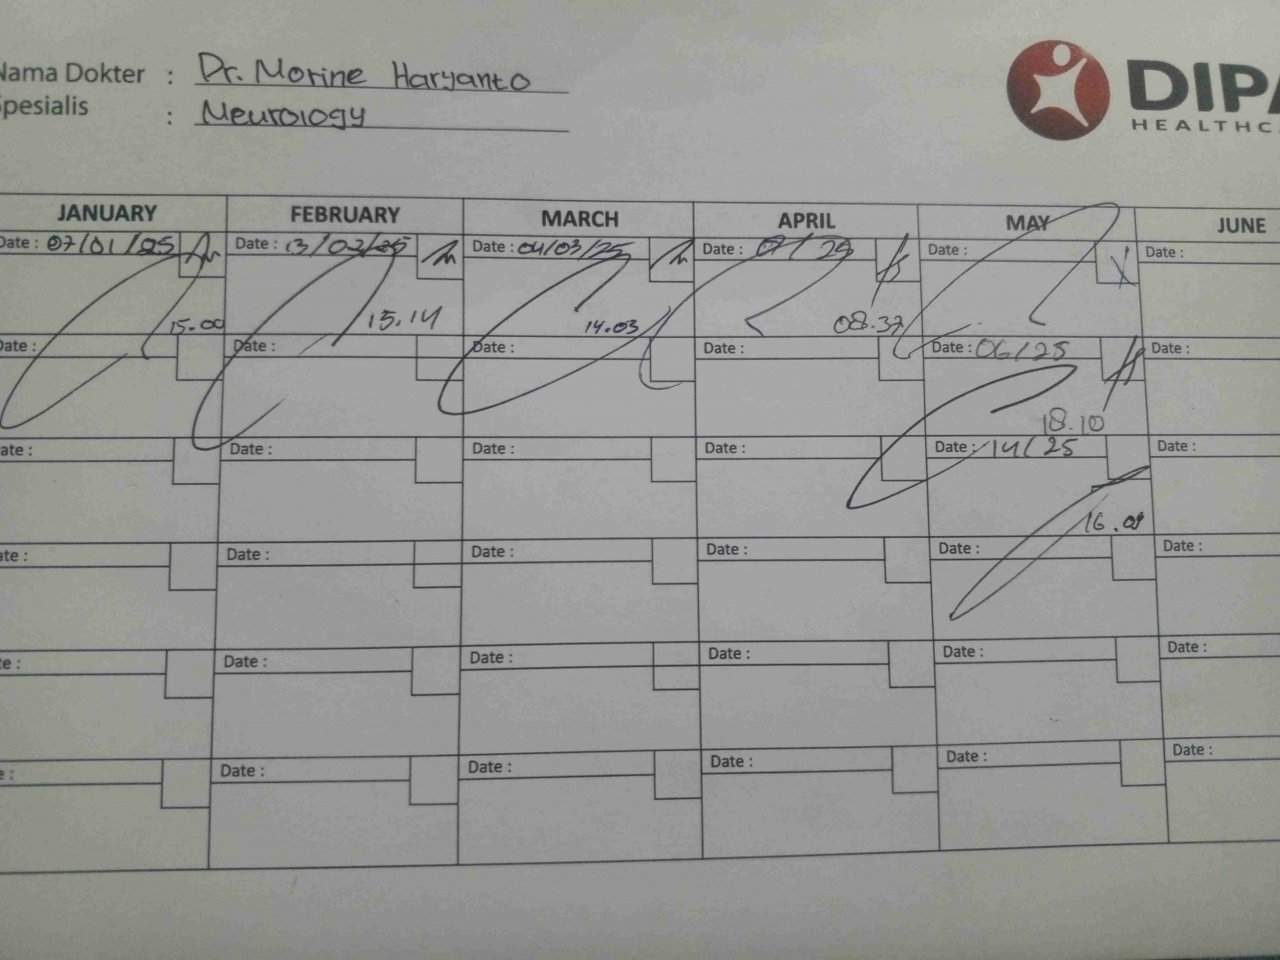 Nama Dokter : Dr. Morine Haryanto
Spesialis : Neurology
DIPA
HEALTHC
JANUARY FEBRUARY MARCH APRIL MAY JUNE
Date : 07/01/25 Date : 13/02/25 Date : 04/03/25 Date : Date : Date :
15.00 15.14 14.03 08.37
Date : Date : Date : Date : Date : 06/25 Date :
18.10
ate : Date : Date : Date : Date : 14/25 Date :
16.09
ate : Date : Date : Date : Date : Date :
te : Date : Date : Date : Date : Date :
e : Date : Date : Date : Date : Date :